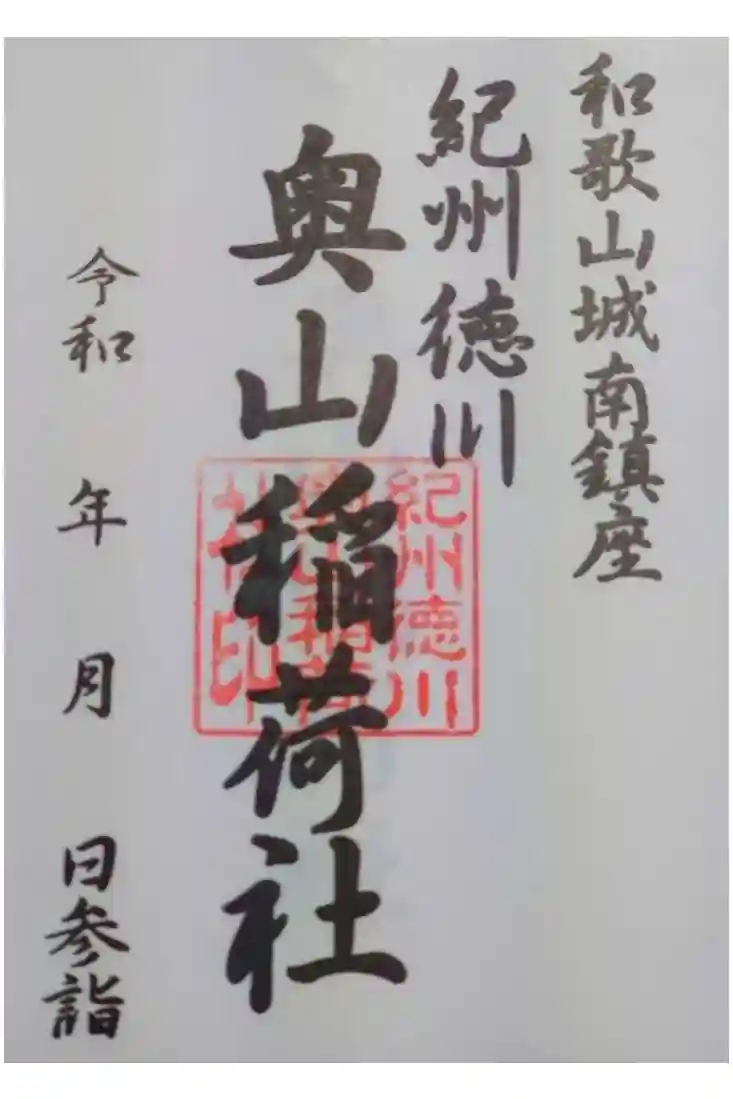 和歌山城南鎮座
紀州徳川
奥山稲荷社
紀州徳川
奥山稲荷
社印
令和 年 月 日参詣